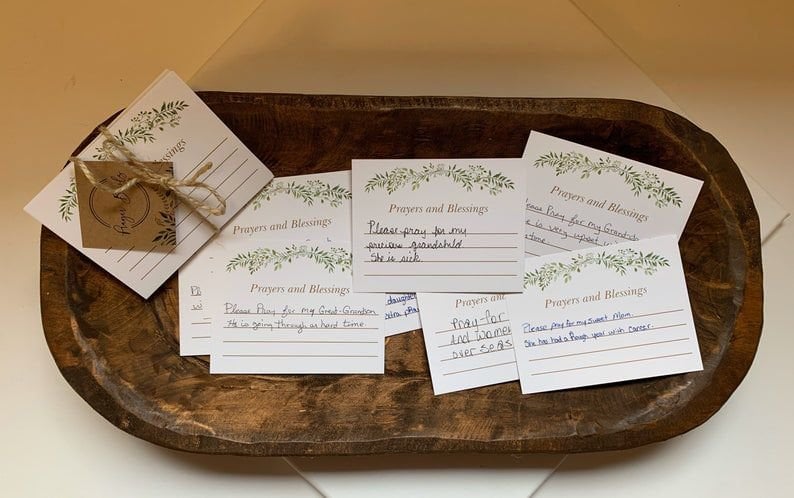 Blessings
Prayers and Blessings
Prayers and Blessings
Please pray for my
precious grandchild.
She is sick.
Prayers and Blessings
Please Pray for my
is very upset
time.
Prayers and Blessings
Please Pray for my Great-Grandson
He is going through as hard time.
daughter
Pray for
And Women
over seas
Prayers and Blessings
Please pray for my sweet Mom.
She has had a though year with career.